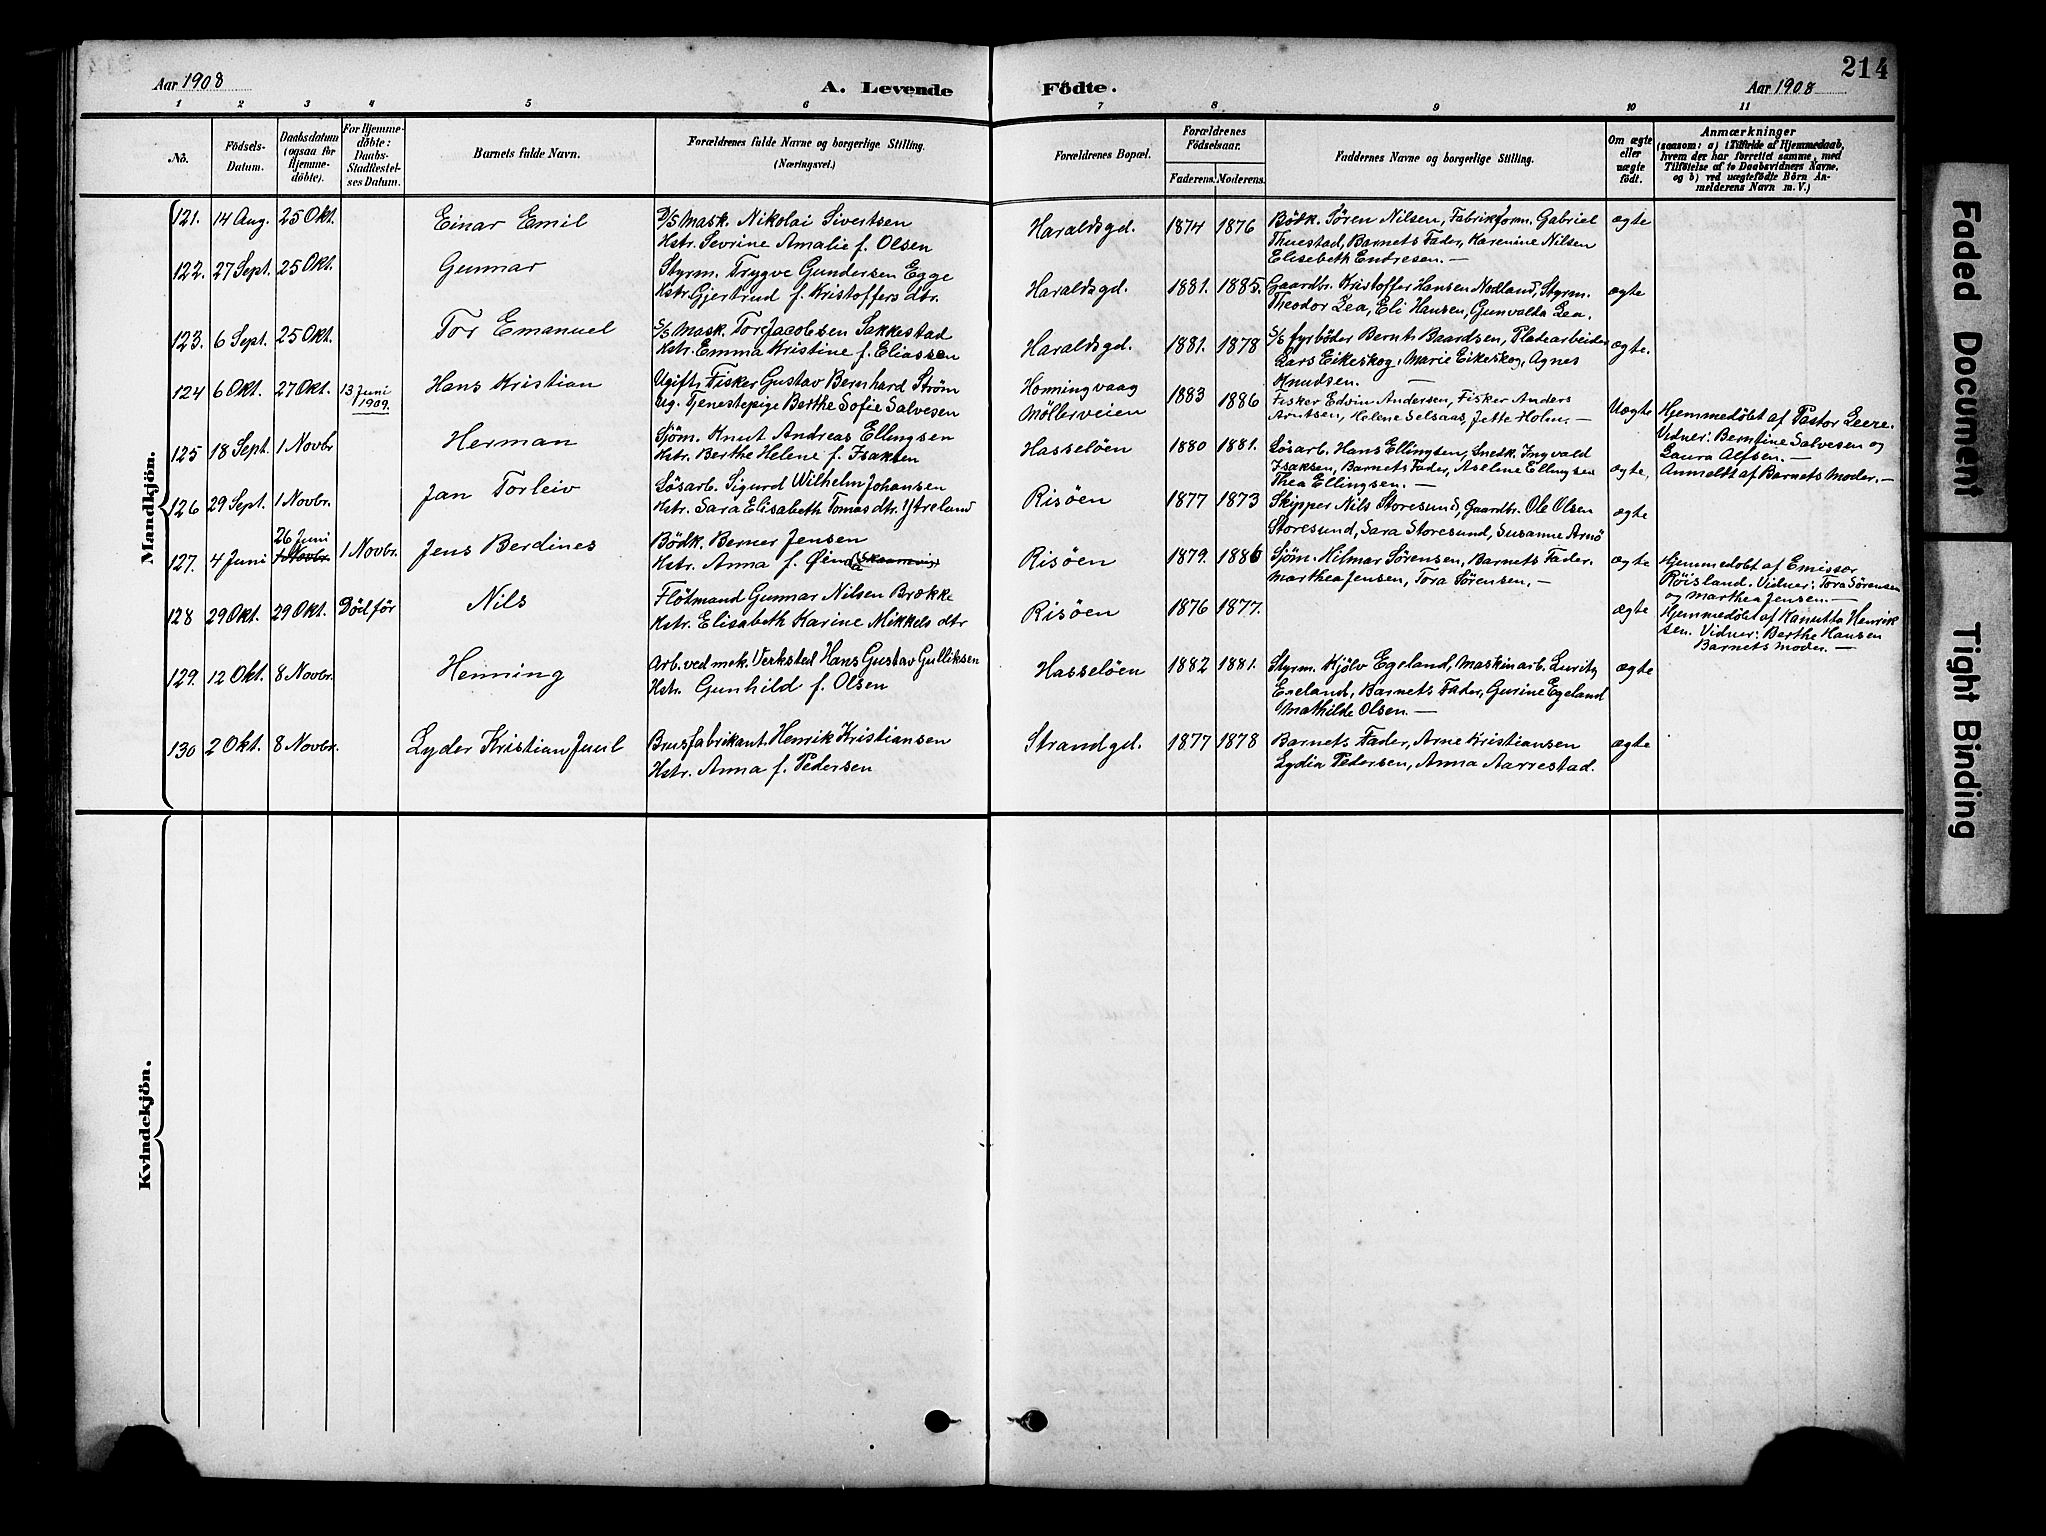 Aar 1908
A. Levende
Födte.
Aar 1908
214
1 2 3 4 5 6 7 8 9 10 11
No.
Födsels-
Datum.
Daabsdatum
(ogsaa for
Hjemme-
döbte).
For Hjemme-
döbte:
Daabs-
Stadfæstel-
ses Datum.
Barnets fulde Navn.
Forældrenes fulde Navne og borgerlige Stilling.
(Næringsvei.)
Forældrenes Bopæl.
Forældrenes
Födselsaar.
Faderens. Moderens.
Faddernes Navne og borgerlige Stilling.
Om ægte
eller
uægte
födt.
Anmærkninger
(saasom: a) i Tilfælde af Hjemmedaab,
hvem der har forrettet samme, med
Tilföielse af to Daabsvidners Navne,
og b) ved uægtefödte Börn An-
melderens Navn m. V.)
Mandkjön.
121. 14 Aug. 25 Okt. Einar Emil
D/S Mask. Nikolai Sivertsen
Hstr. Sevrine Amalie f. Olsen
Haraldsgd. 1874 1876
Bödk. Sören Nilsen, Fabrikform. Gabriel
Thuestad, Barnets Fader, Karenine Nilsen
Elisebeth Endresen. —
ægte
122. 27 Sept. 25 Okt. Gunnar
Styrm. Trygve Gundersen Egge
Hstr. Gjertrud f. Kristoffers dtr.
Haraldsgd. 1881. 1885.
Gaardbr. Kristoffer Hansen Nodland, Styrm.
Theodor Lea, Eli Hansen, Gunvalda Lea.
ægte
123. 6 Sept. 25 Okt. Tor Emanuel
S/S Mask. Tor Jacobsen Sakkestad
Hstr. Emma Kristine f. Eliassen
Haraldsgd. 1881. 1878
S/S fyrböder Bernt Baardsen, Pladearbeider
Lars Eikeskog, Marie Eikeskog, Agnes
Knudsen. —
ægte.
124 6 Okt. 27 Okt. 13 Juni 1909. Hans Kristian
Ugift, Fisker Gustav Bernhard Ström
Ug. Tjenestepige Berthe Sofie Salvesen
Honningvaag
Möllerveien
1883 1886
Fisker Edvin Andersen, Fisker Anders
Arntsen, Helene Selsaas, Jette Holm. —
Uægte
Hjemmedöbt af Pastor Leere.
Vidner: Berntine Salvesen og
Laura Alfsen. —
Anmeldt af Barnets Moder. —
125 18 Sept. 1 Novbr Herman
Sjöm. Knut Andreas Ellingsen
Hstr. Berthe Helene f. Isaksen
Hasselöen 1880 1881.
Lösarb. Hans Ellingsen, Snedk. Ingvald
Isaksen, Barnets Fader, Aselene Ellingsen
Thea Ellingsen. —
ægte,
126 29 Sept. 1 Novbr. Jan Torleiv
Lösarb. Sigurd Wilhelm Johansen
Hstr. Sara Elisabeth Tomasdtr.
Risöen 1877 1873
Skipper Nils Storesund, Gaardbr. Ole Olsen
Storesund, Sara Storesund, Susanne Arnö
ægte
127. 4 Juni 26 Juni 1 Novbr. 1 Novbr. Jens Berdines
Bödk. Berner Jensen
Hstr. Anna f.
Risöen 1879. 1886
Sjöm. Hilmar Sörensen, Barnets Fader.
Marthea Jensen, Tora Sörensen. —
ægte
Hjemmedöbt af Emissær
Röisland. Vidner: Tora Sörensen
og Marthea Jensen. —
128 29 Okt. 29 Okt. Död för Nils
Flötmand Gunnar Nilsen Brække
Hstr. Elisabeth Karine Mikkels dtr
Risöen 1876 1877.
ægte
Hjemmedöbt af Kanutta Henrik
sen. Vidner: Berthe Hansen
Barnets Moder. —
129. 12 Okt. 8 Novbr. Henning
Arb. ved mek. Verksted Hans Gustav Gulliksen
Hstr. Gunhild f. Olsen
Hasselöen 1882 1881.
Styrm. Kjölv Egeland, Maskinarb. Lurits
Egeland, Barnets Fader, Gurine Egeland
Mathilde Olsen. —
ægte
130 2 Okt. 8 Novbr. Lyder Kristian Juul
Brusfabrikant Henrik Kristiansen
Hstr. Anna f. Pedersen
Strandgd. 1877 1878
Barnets Fader, Arne Kristiansen
Lydia Pedersen, Anna Aarrestad.
ægte
Kvindekjön.
Faded Document
Tight Binding